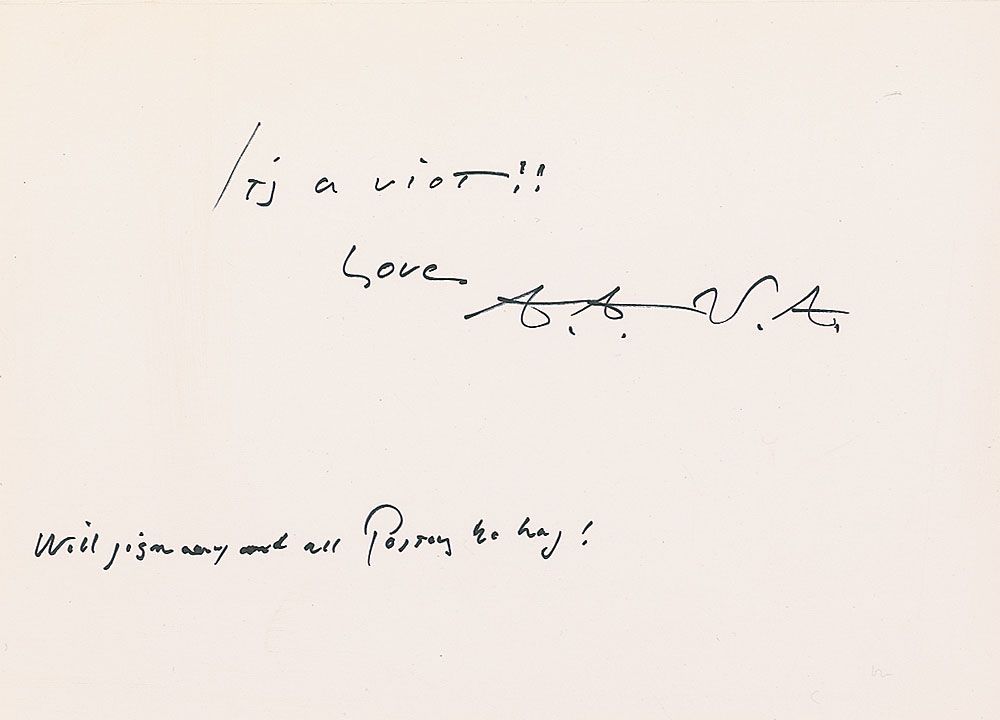 Its a riot!!
Love
A. A. V. A.
Will sign any and all Posters he has!